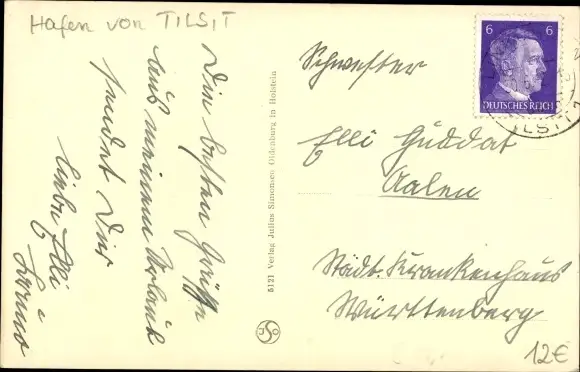 Hafen von TILSIT
Die besten Grüße
aus meinem Urlaub
sendet Dir
liebe Elli
5121 Verlag Julius Simonsen Oldenburg in Holstein
6 6
DEUTSCHES REICH
TILSIT
Schwester
Elli Guddat
Aalen
Städt. Krankenhaus
Württenberg
12€